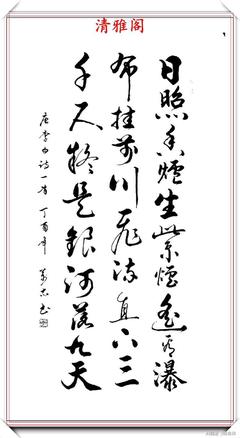 清雅阁
日照香爐生紫煙遙看瀑
布挂前川飛流直下三
千尺疑是銀河落九天
唐李白诗一首 丁酉年 书